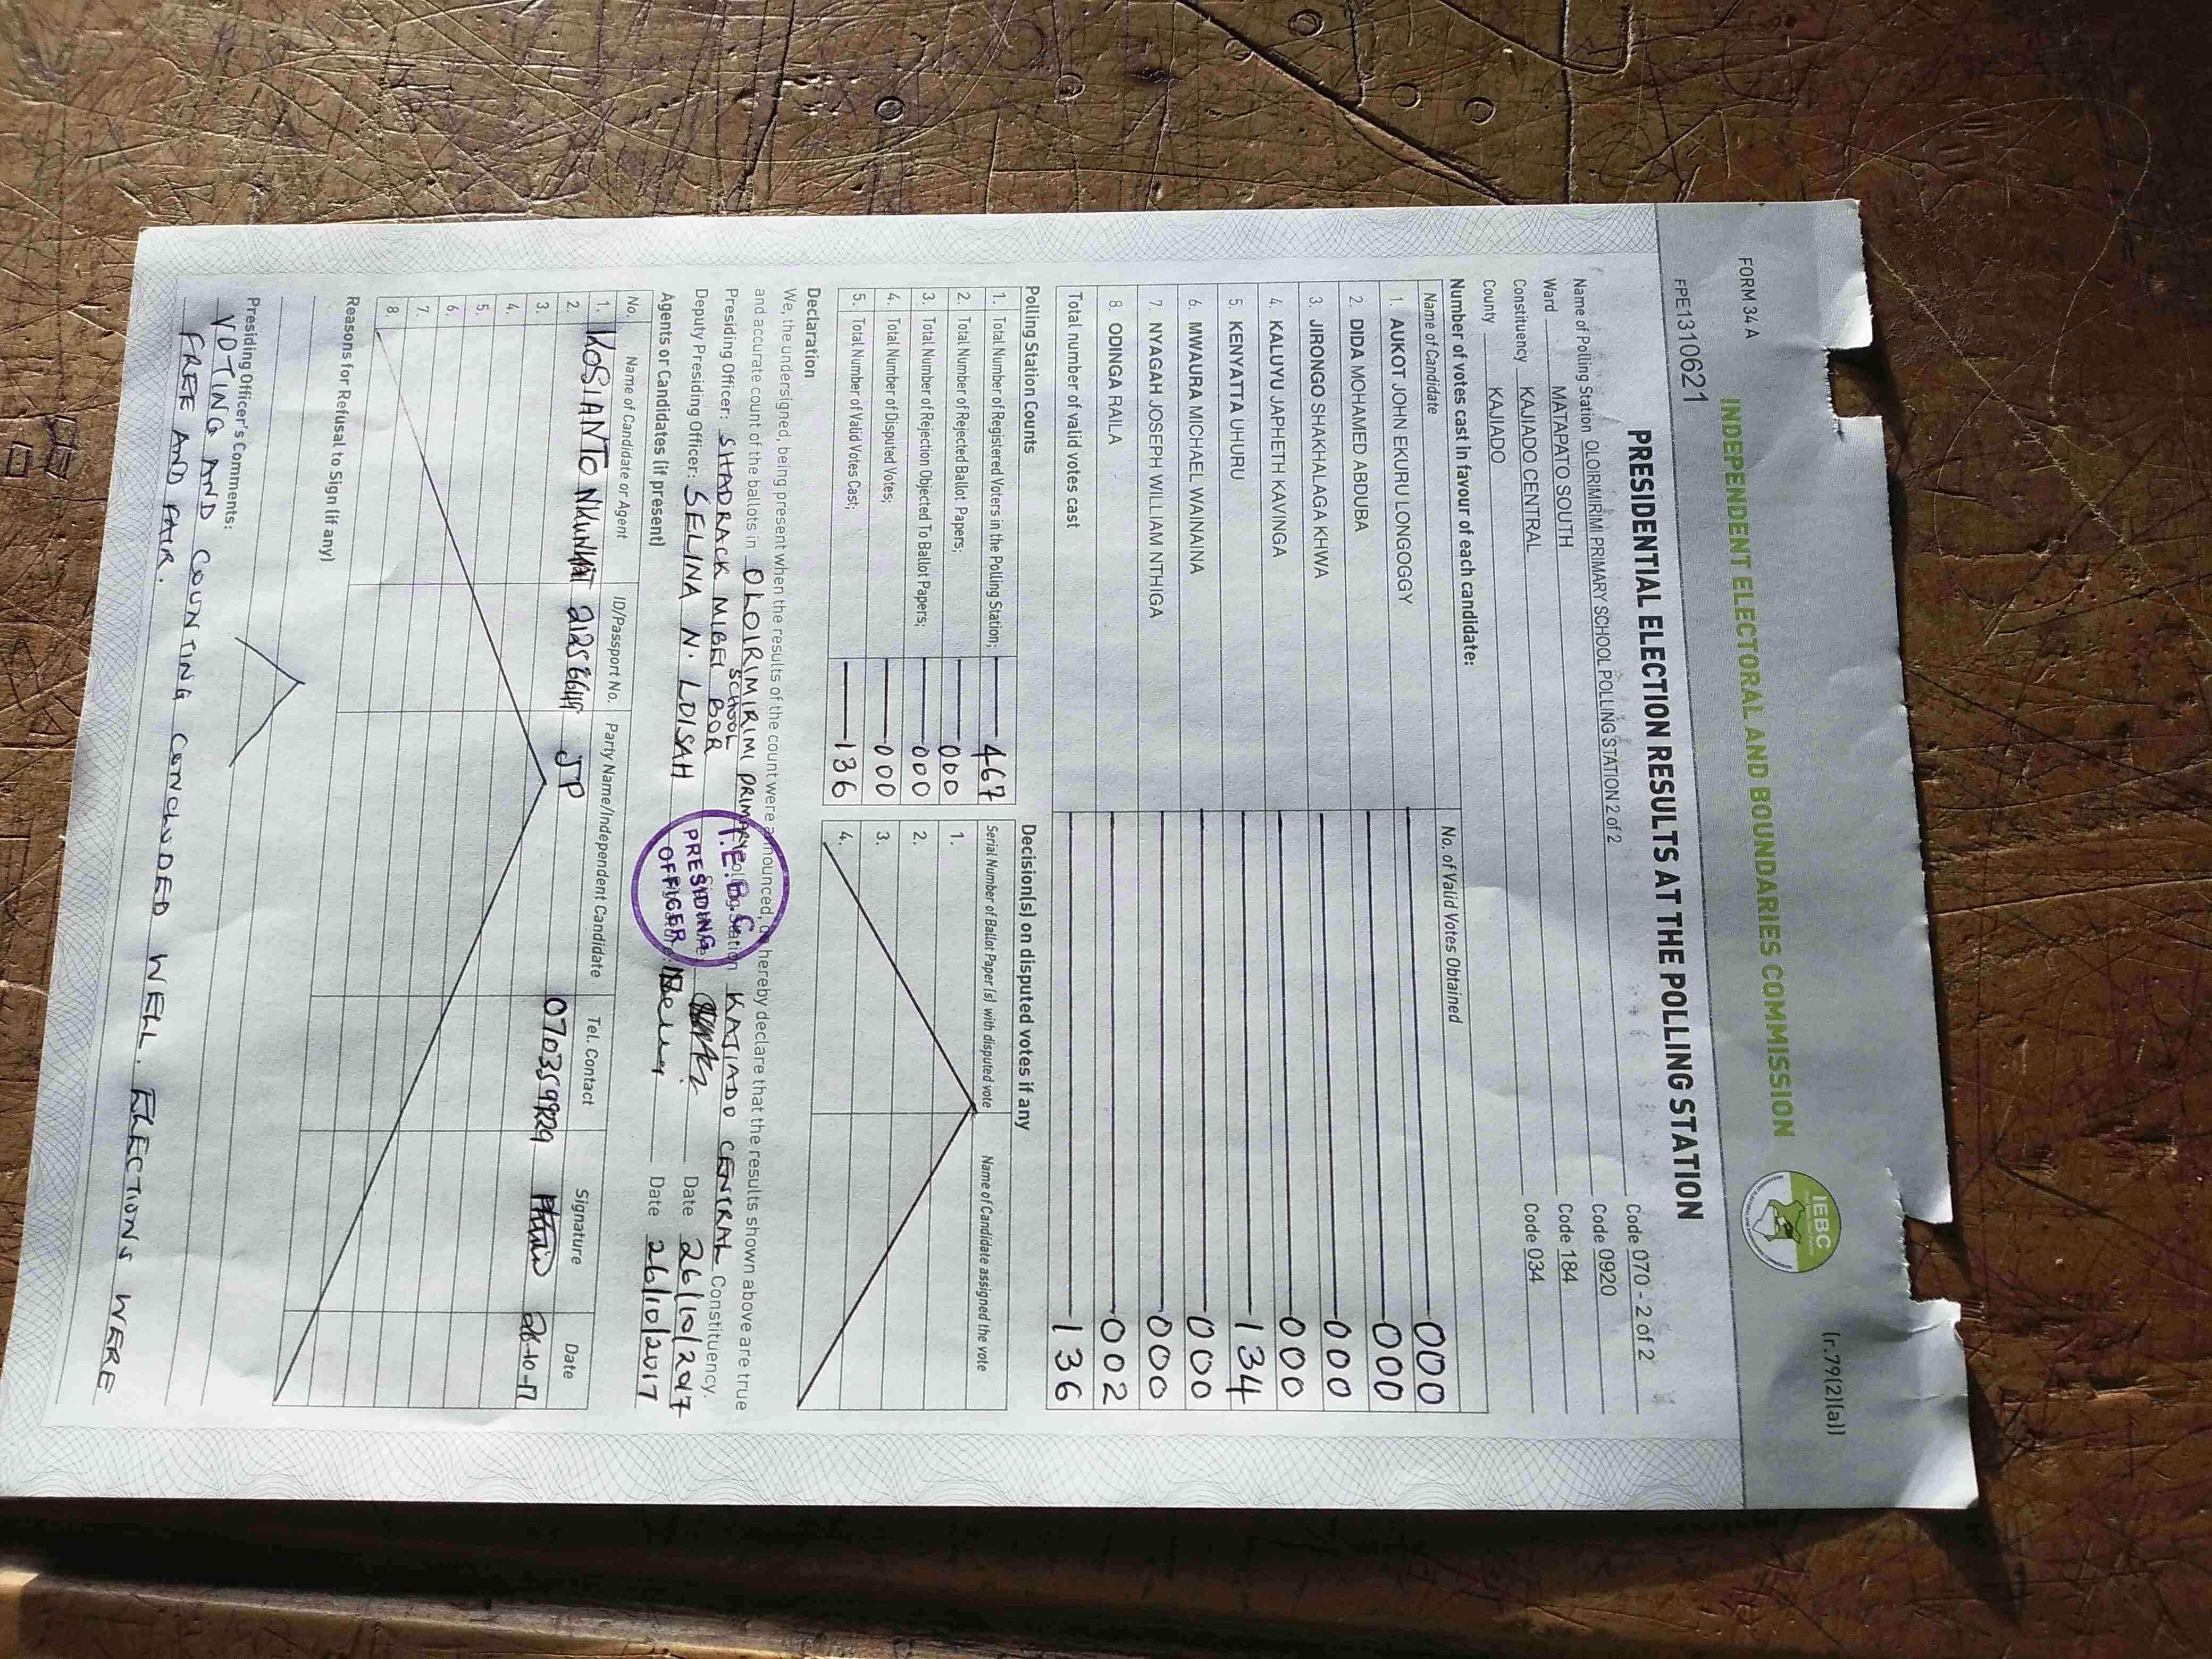 FORM 34 A
(r.79(2)(a))
INDEPENDENT ELECTORAL AND BOUNDARIES COMMISSION
IEBC
FPE1310621
PRESIDENTIAL ELECTION RESULTS AT THE POLLING STATION
Name of Polling Station OLOIRIMIRIMI PRIMARY SCHOOL POLLING STATION 2 of 2 Code 070 - 2 of 2
Ward MATAPATO SOUTH Code 0920
Constituency KAJIADO CENTRAL Code 184
County KAJIADO Code 034
Number of votes cast in favour of each candidate:
Name of Candidate No. of Valid Votes Obtained
1. AUKOT JOHN EKURU LONGOGGY 000
2. DIDA MOHAMED ABDUBA 000
3. JIRONGO SHAKHALAGA KHWA 000
4. KALUYU JAPHETH KAVINGA 000
5. KENYATTA UHURU 134
6. MWAURA MICHAEL WAINAINA 000
7. NYAGAH JOSEPH WILLIAM NTHIGA 000
8. ODINGA RAILA 002
Total number of valid votes cast 136
Polling Station Counts
1. Total Number of Registered Voters in the Polling Station; 467
2. Total Number of Rejected Ballot Papers; 000
3. Total Number of Rejection Objected To Ballot Papers; 000
4. Total Number of Disputed Votes; 000
5. Total Number of Valid Votes Cast; 136
Decision(s) on disputed votes if any
Serial Number of Ballot Paper(s) with disputed vote Name of Candidate assigned the vote
1.
2.
3.
4.
Declaration
We, the undersigned, being present when the results of the count were announced, do hereby declare that the results shown above are true
and accurate count of the ballots in OLOIRIMIRIMI PRIMARY SCHOOL Polling Station KAJIADO CENTRAL Constituency.
Presiding Officer: SHADRACK MIBEI BOR Date 26/10/2017
Deputy Presiding Officer: SELINA N. LOISAH Date 26/10/2017
I.E.B.C
PRESIDING
OFFICER
Agents or Candidates (if present)
No. Name of Candidate or Agent ID/Passport No. Party Name/Independent Candidate Tel. Contact Signature Date
1. KOSIANTO JP 0703599929 26-10-17
2.
3.
4.
5.
6.
7.
8.
Reasons for Refusal to Sign (if any)
Presiding Officer's Comments:
VOTING AND COUNTING CONCLUDED WELL. ELECTIONS WERE
FREE AND FAIR.